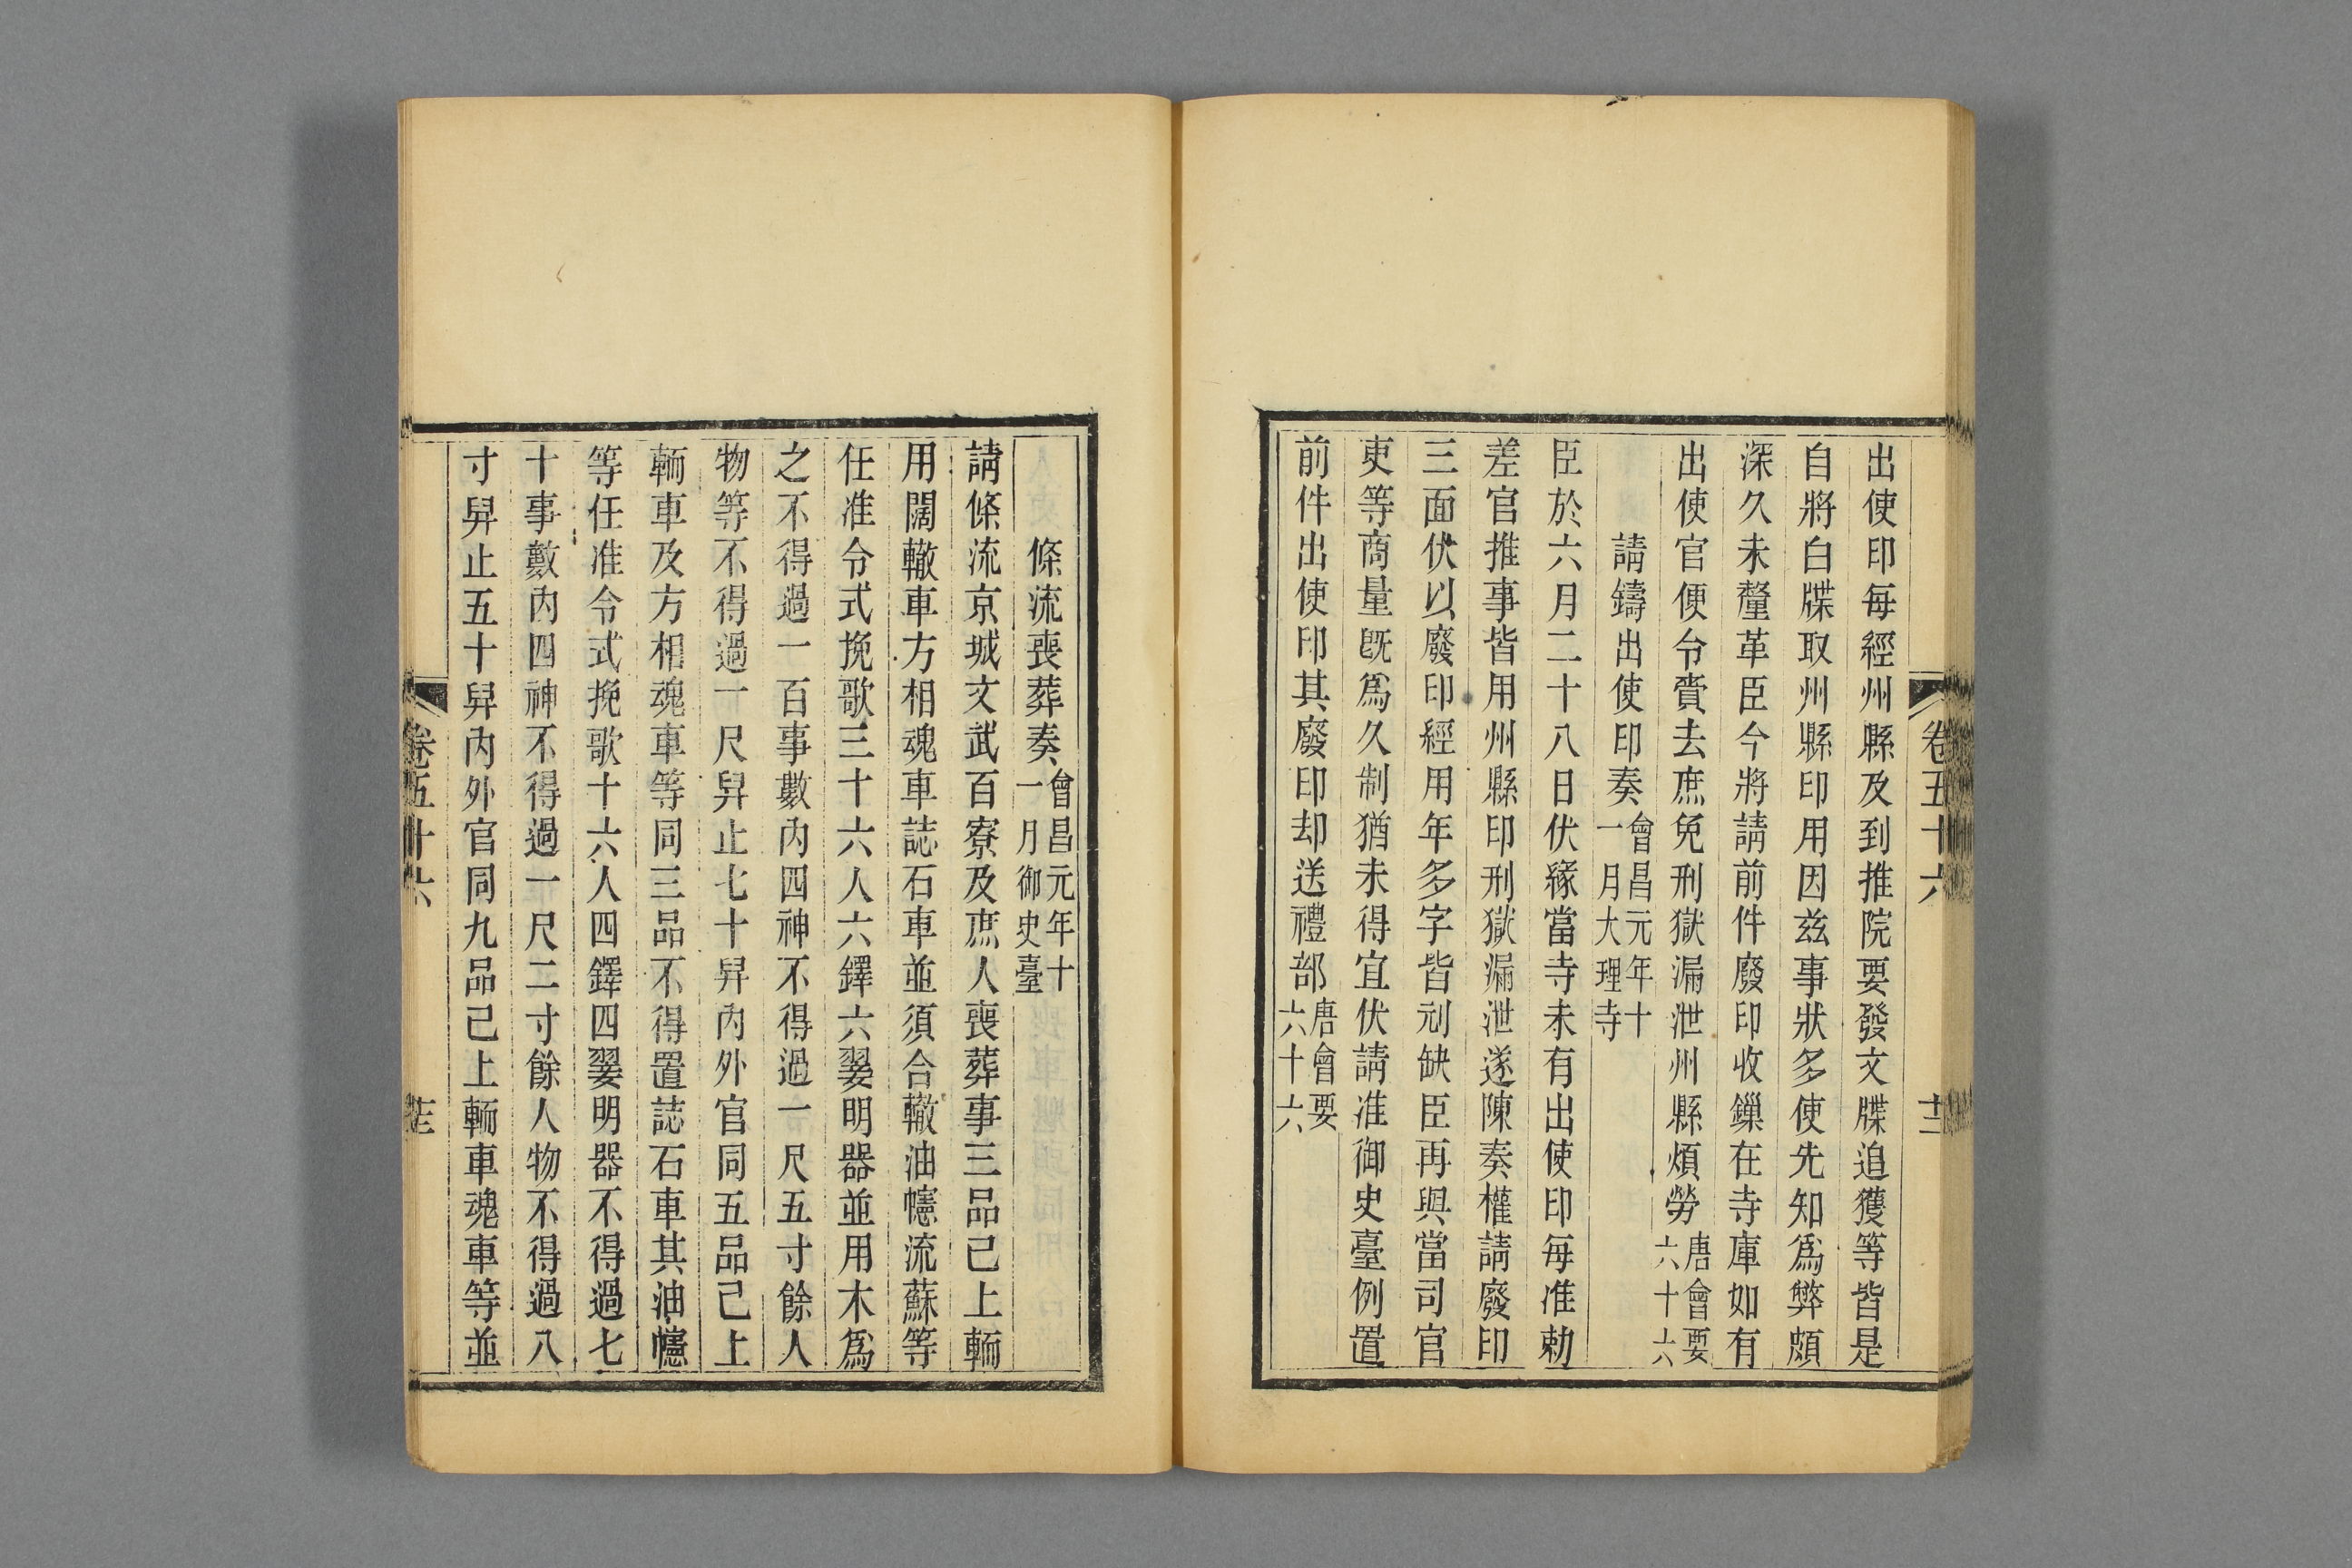 出使印每經州縣及到推院要發文牒追獲等皆是
自將白牒取州縣印用因兹事狀多使先知爲弊頗
深久未釐革臣今將請前件廢印收鏁在寺庫如有
出使官便令賫去庶免刑獄漏泄州縣煩勞唐會要六十六
請鑄出使印奏會昌元年十一月大理寺
臣於六月二十八日伏緣當寺未有出使印每准勅
差官推事皆用州縣印刑獄漏泄遂陳奏權請廢印
三面伏以廢印經用年多字皆刓缺臣再與當司官
吏等商量旣爲久制猶未得宜伏請准御史臺例置
前件出使印其廢印却送禮部唐會要六十六
條流喪葬奏會昌元年十一月御史臺
請條流京城文武百寮及庶人喪葬事三品已上輀
用闊轍車方相魂車誌石車並須合轍油幰流蘇等
任准令式挽歌三十六人六鐸六翣明器並用木爲
之不得過一百事數內四神不得過一尺五寸餘人
物等不得過一尺舁止七十舁內外官同五品已上
輀車及方相魂車等同三品不得置誌石車其油幰
等任准令式挽歌十六人四鐸四翣明器不得過七
十事數內四神不得過一尺二寸餘人物不得過八
寸舁止五十舁內外官同九品已上輀車魂車等並
卷五十六